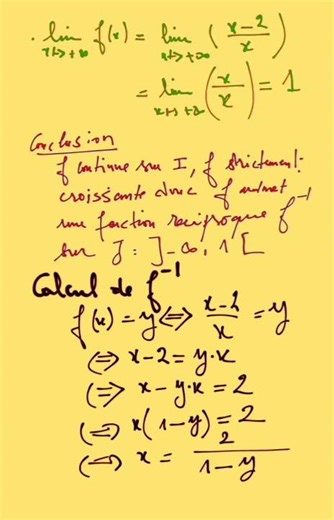 . lim f(x) = lim (x-2/x)
x→+∞ x→+∞
= lim (x/x) = 1
x→+∞
Conclusion
f continue sur I, f strictement
croissante donc f admet
une fonction reciproque f⁻¹
sur J : ]-∞, 1[
Calcul de f⁻¹
f(x) = y ⇔ x-2/x = y
⇔ x-2 = y·x
⇔ x-y·x = 2
⇔ x(1-y) = 2
⇔ x = 2/1-y